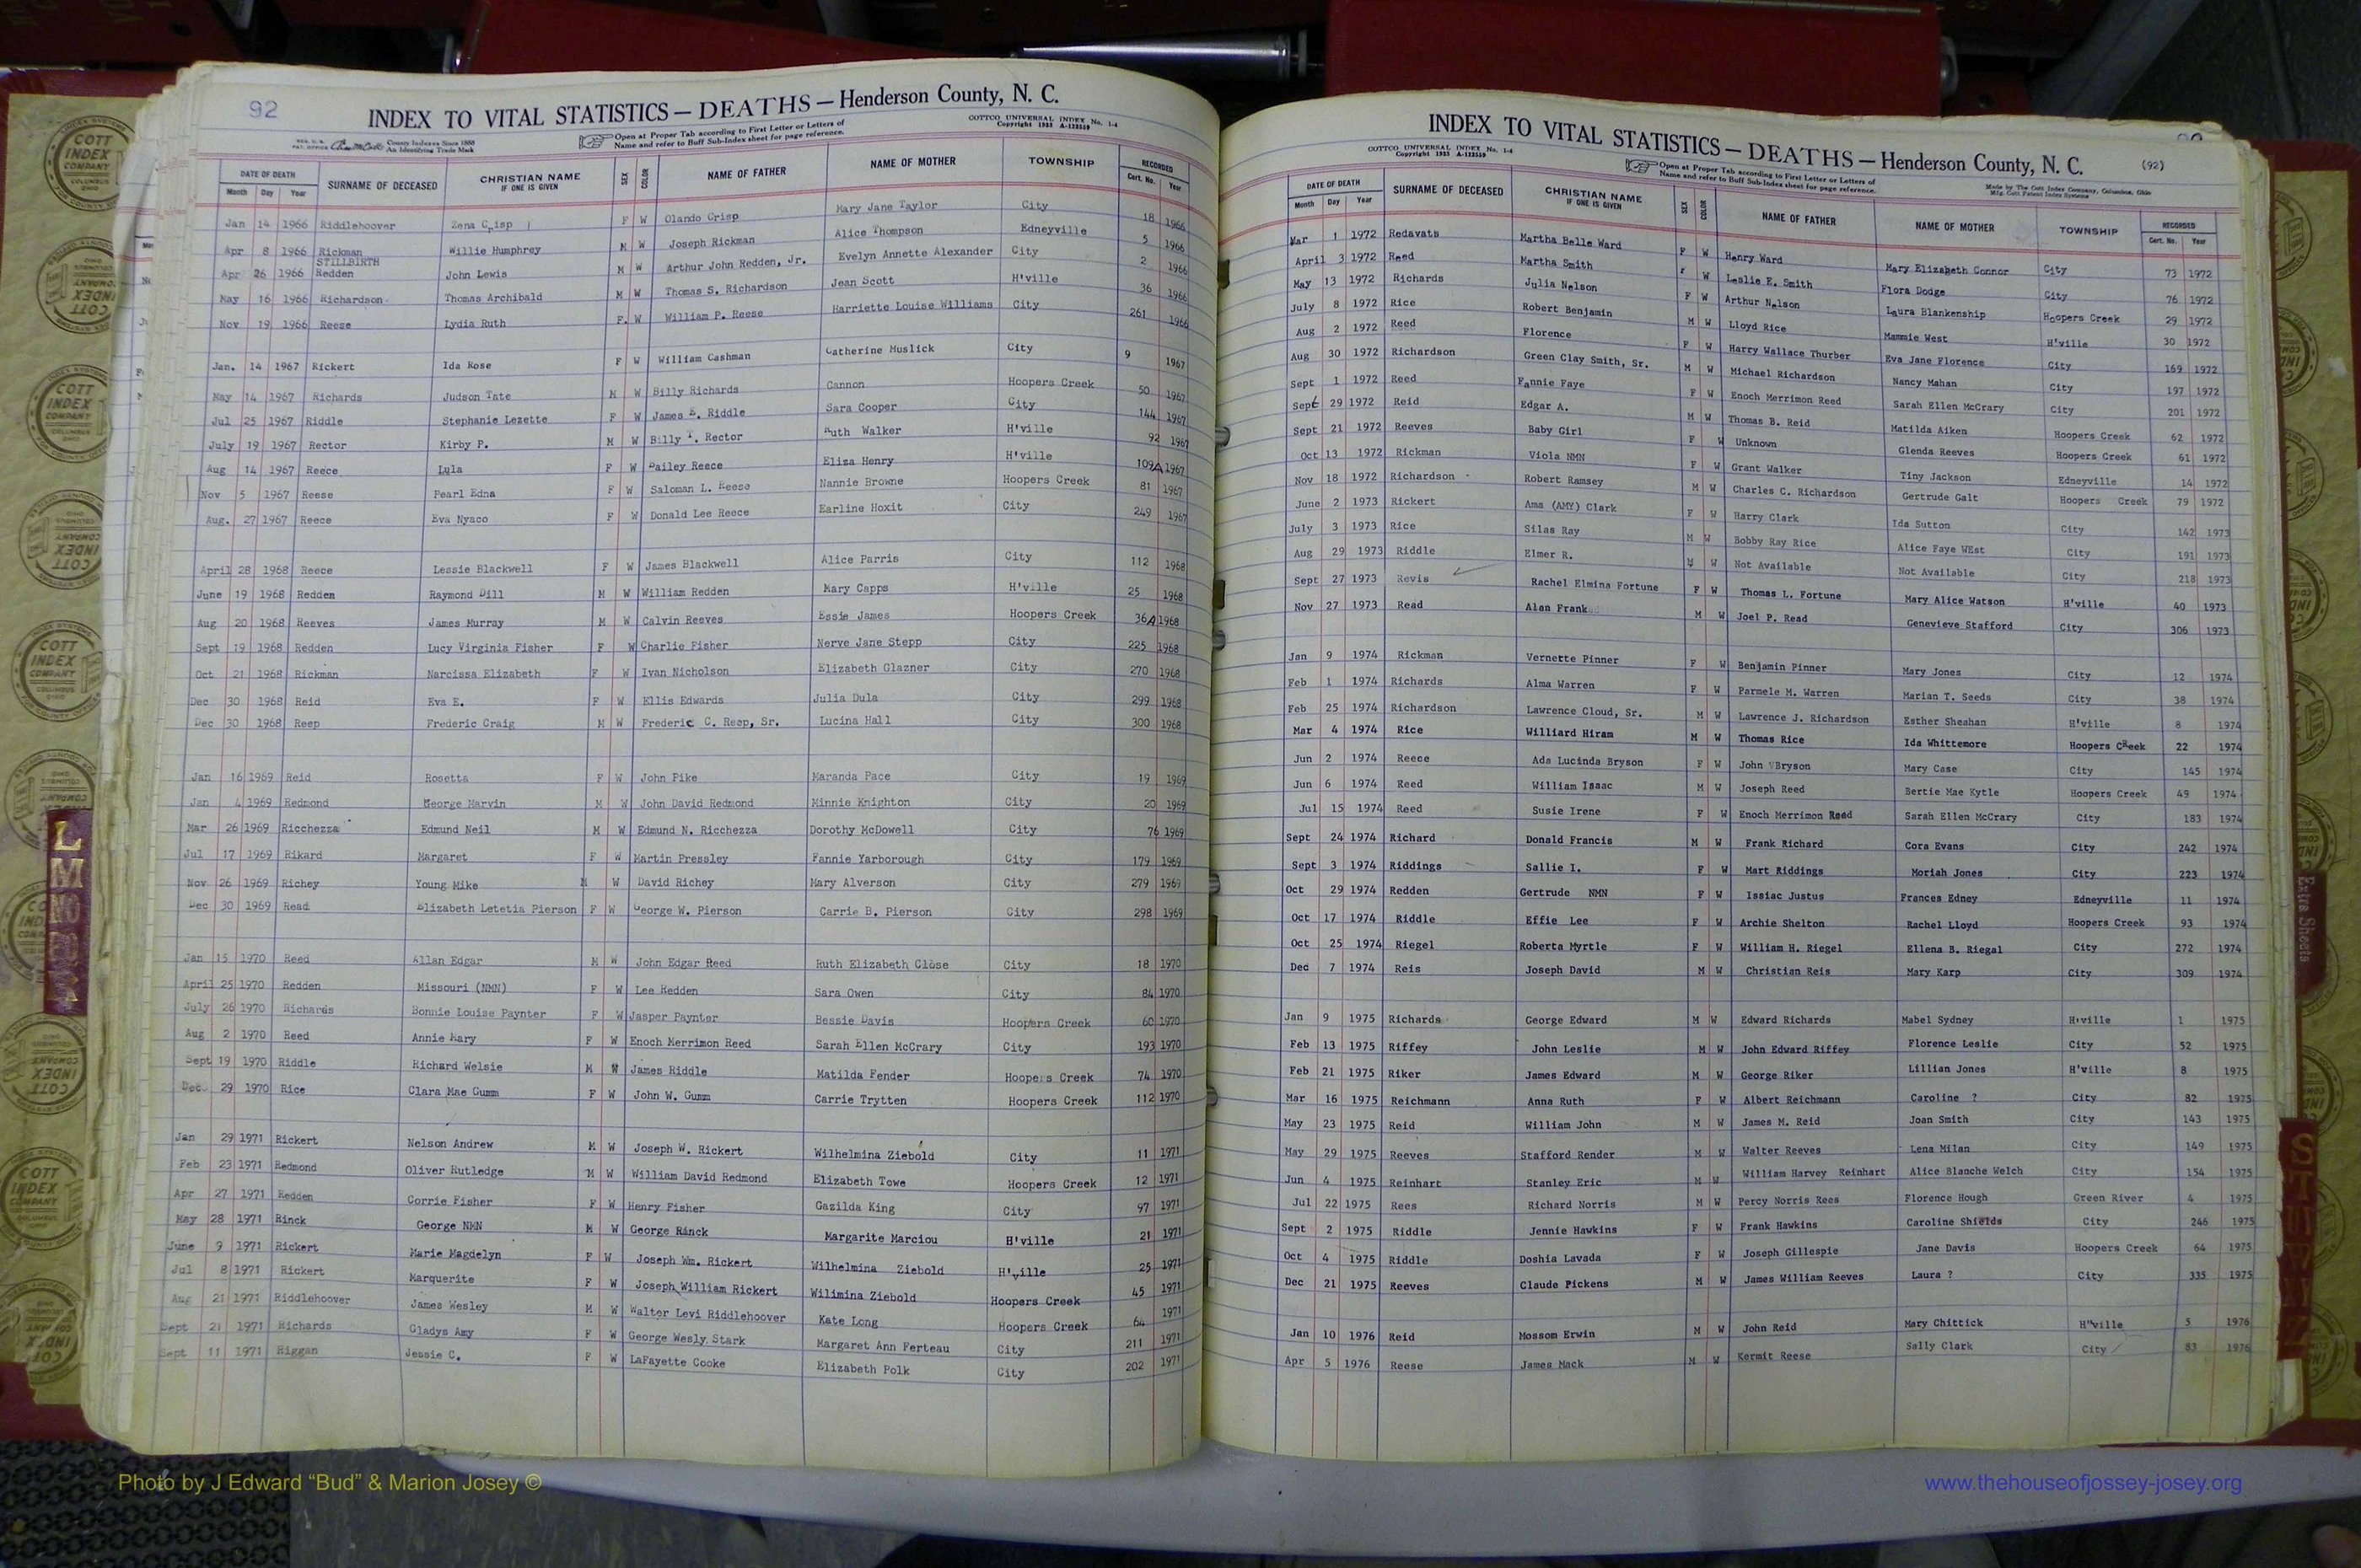 92
INDEX TO VITAL STATISTICS — DEATHS — Henderson County, N. C.
REG. U.S. PAT. OFFICE County Indexes Since 1888 An Identifying Trade Mark
Open at Proper Tab according to First Letter or Letters of Name and refer to Buff Sub-Index sheet for page reference.
COTTCO UNIVERSAL INDEX No. 1-4 Copyright 1933 A-123559
DATE OF DEATH Month Day Year SURNAME OF DECEASED CHRISTIAN NAME IF ONE IS GIVEN SEX COLOR NAME OF FATHER NAME OF MOTHER TOWNSHIP RECORDED Cert. No. Year
Jan 14 1966 Riddlehoover Zena Crisp F W Olando Crisp Mary Jane Taylor City 18 1966
Apr 8 1966 Rickman Willie Humphrey M W Joseph Rickman Alice Thompson Edneyville 5 1966
STILLBIRTH
Apr 26 1966 Redden John Lewis M W Arthur John Redden, Jr. Evelyn Annette Alexander City 2 1966
May 16 1966 Richardson Thomas Archibald M W Thomas S. Richardson Jean Scott H'ville 36 1966
Nov 19 1966 Reese Lydia Ruth F. W William P. Reese Harriette Louise Williams City 261 1966
Jan. 14 1967 Rickert Ida Rose F W William Cashman Catherine Muslick City 9 1967
May 14 1967 Richards Judson Tate M W Billy Richards Cannon Hoopers Creek 50 1967
Jul 25 1967 Riddle Stephanie Lezette F W James B. Riddle Sara Cooper City 144 1967
July 19 1967 Rector Kirby P. M W Billy T. Rector Ruth Walker H'ville 92 1967
Aug 14 1967 Reece Lula F W Bailey Reece Eliza Henry H'ville 109A 1967
Nov 5 1967 Reese Pearl Edna F W Saloman L. Reese Nannie Browne Hoopers Creek 81 1967
Aug. 27 1967 Reece Eva Nyaco F W Donald Lee Reece Earline Hoxit City 249 1967
April 28 1968 Reece Lessie Blackwell F W James Blackwell Alice Parris City 112 1968
June 19 1968 Redden Raymond Dill M W William Redden Mary Capps H'ville 25 1968
Aug 20 1968 Reeves James Murray M W Calvin Reeves Essie James Hoopers Creek 36A 1968
Sept 19 1968 Redden Lucy Virginia Fisher F W Charlie Fisher Nerve Jane Stepp City 225 1968
Oct 21 1968 Rickman Narcissa Elizabeth F W Ivan Nicholson Elizabeth Glazner City 270 1968
Dec 30 1968 Reid Eva E. F W Ellis Edwards Julia Dula City 299 1968
Dec 30 1968 Reep Frederic Craig M W Frederic C. Reep, Sr. Lucina Hall City 300 1968
Jan 16 1969 Reid Rosetta F W John Pike Maranda Pace City 19 1969
Jan 4 1969 Redmond George Marvin M W John David Redmond Minnie Knighton City 20 1969
Mar 26 1969 Ricchezza Edmund Neil M W Edmund N. Ricchezza Dorothy McDowell City 76 1969
Jul 17 1969 Rikard Margaret F W Martin Pressley Fannie Yarborough City 179 1969
Nov 26 1969 Richey Young Mike M W David Richey Mary Alverson City 279 1969
Dec 30 1969 Read Elizabeth Letetia Pierson F W George W. Pierson Carrie B. Pierson City 298 1969
Jan 15 1970 Reed Allan Edgar M W John Edgar Reed Ruth Elizabeth Close City 18 1970
April 25 1970 Redden Missouri (NMN) F W Lee Redden Sara Owen City 84 1970
July 26 1970 Richards Bonnie Louise Paynter F W Jasper Paynter Bessie Davis Hoopers Creek 60 1970
Aug 2 1970 Reed Annie Mary F W Enoch Merrimon Reed Sarah Ellen McCrary City 193 1970
Sept 19 1970 Riddle Richard Welsie M W James Riddle Matilda Fender Hoopers Creek 74 1970
Dec. 29 1970 Rice Clara Mae Gumm F W John W. Gumm Carrie Trytten Hoopers Creek 112 1970
Jan 29 1971 Rickert Nelson Andrew M W Joseph W. Rickert Wilhelmina Ziebold City 11 1971
Feb 23 1971 Redmond Oliver Rutledge M W William David Redmond Elizabeth Towe Hoopers Creek 12 1971
Apr 27 1971 Redden Corrie Fisher F W Henry Fisher Gazilda King City 97 1971
May 28 1971 Rinck George NMN M W George Rinck Margarite Marciou H'ville 21 1971
June 9 1971 Rickert Marie Magdelyn F W Joseph Wm. Rickert Wilhelmina Ziebold H'ville 25 1971
Jul 8 1971 Rickert Marquerite F W Joseph William Rickert Wilimina Ziebold Hoopers Creek 45 1971
Aug 21 1971 Riddlehoover James Wesley M W Walter Levi Riddlehoover Kate Long Hoopers Creek 64 1971
Sept 21 1971 Richards Gladys Amy F W George Wesly Stark Margaret Ann Ferteau City 211 1971
Sept 11 1971 Riggan Jessie C. F W LaFayette Cooke Elizabeth Polk City 202 1971
INDEX TO VITAL STATISTICS — DEATHS — Henderson County, N. C.
(92)
COTTCO UNIVERSAL INDEX No. 1-4 Copyright 1933 A-123559
Open at Proper Tab according to First Letter or Letters of Name and refer to Buff Sub-Index sheet for page reference.
Made by The Cott Index Company, Columbus, Ohio
DATE OF DEATH Month Day Year SURNAME OF DECEASED CHRISTIAN NAME IF ONE IS GIVEN SEX COLOR NAME OF FATHER NAME OF MOTHER TOWNSHIP RECORDED Cert. No. Year
Mar 1 1972 Redavats Martha Belle Ward F W Henry Ward Mary Elizabeth Connor City 73 1972
April 3 1972 Reed Martha Smith F W Leslie E. Smith Flora Dodge City 76 1972
May 13 1972 Richards Julia Nelson F W Arthur Nelson Laura Blankenship Hoopers Creek 29 1972
July 8 1972 Rice Robert Benjamin M W Lloyd Rice Mammie West H'ville 30 1972
Aug 2 1972 Reed Florence F W Harry Wallace Thurber Eva Jane Florence City 169 1972
Aug 30 1972 Richardson Green Clay Smith, Sr. M W Michael Richardson Nancy Mahan City 197 1972
Sept 1 1972 Reed Fannie Faye F W Enoch Merrimon Reed Sarah Ellen McCrary City 201 1972
Sept 29 1972 Reid Edgar A. M W Thomas B. Reid Matilda Aiken Hoopers Creek 62 1972
Sept 21 1972 Reeves Baby Girl F W Unknown Glenda Reeves Hoopers Creek 61 1972
Oct 13 1972 Rickman Viola NMN F W Grant Walker Tiny Jackson Edneyville 14 1972
Nov 18 1972 Richardson Robert Ramsey M W Charles C. Richardson Gertrude Galt Hoopers Creek 79 1972
June 2 1973 Rickert Ama (AMY) Clark F W Harry Clark Ida Sutton City 142 1973
July 3 1973 Rice Silas Ray M W Bobby Ray Rice Alice Faye WEst City 191 1973
Aug 29 1973 Riddle Elmer R. W Not Available Not Available City 218 1973
Sept 27 1973 Revis Rachel Elmina Fortune F W Thomas L. Fortune Mary Alice Watson H'ville 40 1973
Nov 27 1973 Read Alan Frank M W Joel P. Read Genevieve Stafford City 306 1973
Jan 9 1974 Rickman Vernette Pinner F W Benjamin Pinner Mary Jones City 12 1974
Feb 1 1974 Richards Alma Warren F W Parmele M. Warren Marian T. Seeds City 38 1974
Feb 25 1974 Richardson Lawrence Cloud, Sr. M W Lawrence J. Richardson Esther Sheahan H'ville 8 1974
Mar 4 1974 Rice Williard Hiram M W Thomas Rice Ida Whittemore Hoopers CReek 22 1974
Jun 2 1974 Reece Ada Lucinda Bryson F W John Bryson Mary Case City 145 1974
Jun 6 1974 Reed William Isaac M W Joseph Reed Bertie Mae Kytle Hoopers Creek 49 1974
Jul 15 1974 Reed Susie Irene F W Enoch Merrimon Reed Sarah Ellen McCrary City 183 1974
Sept 24 1974 Richard Donald Francis M W Frank Richard Cora Evans City 242 1974
Sept 3 1974 Riddings Sallie I. F W Mart Riddings Moriah Jones City 223 1974
Oct 29 1974 Redden Gertrude NMN F W Issiac Justus Frances Edney Edneyville 11 1974
Oct 17 1974 Riddle Effie Lee F W Archie Shelton Rachel Lloyd Hoopers Creek 93 1974
Oct 25 1974 Riegel Roberta Myrtle F W William H. Riegel Ellena B. Riegal City 272 1974
Dec 7 1974 Reis Joseph David M W Christian Reis Mary Karp City 309 1974
Jan 9 1975 Richards George Edward M W Edward Richards Mabel Sydney H'ville 1 1975
Feb 13 1975 Riffey John Leslie M W John Edward Riffey Florence Leslie City 52 1975
Feb 21 1975 Riker James Edward M W George Riker Lillian Jones H'ville 8 1975
Mar 16 1975 Reichmann Anna Ruth F W Albert Reichmann Caroline ? City 82 1975
May 23 1975 Reid William John M W James M. Reid Joan Smith City 143 1975
May 29 1975 Reeves Stafford Render M W Walter Reeves Lena Milan City 149 1975
Jun 4 1975 Reinhart Stanley Eric M W William Harvey Reinhart Alice Blanche Welch City 154 1975
Jul 22 1975 Rees Richard Norris M W Percy Norris Rees Florence Hough Green River 4 1975
Sept 2 1975 Riddle Jennie Hawkins F W Frank Hawkins Caroline Shields City 246 1975
Oct 4 1975 Riddle Doshia Lavada F W Joseph Gillespie Jane Davis Hoopers Creek 64 1975
Dec 21 1975 Reeves Claude Pickens M W James William Reeves Laura ? City 335 1975
Jan 10 1976 Reid Mossom Erwin M W John Reid Mary Chittick H"ville 5 1976
Apr 5 1976 Reese James Mack M W Kermit Reese Sally Clark City 83 1976
COTT INDEX COMPANY
L
M
Extra Sheets
S
T
Photo by J Edward “Bud” & Marion Josey ©
www.thehouseofjossey-josey.org